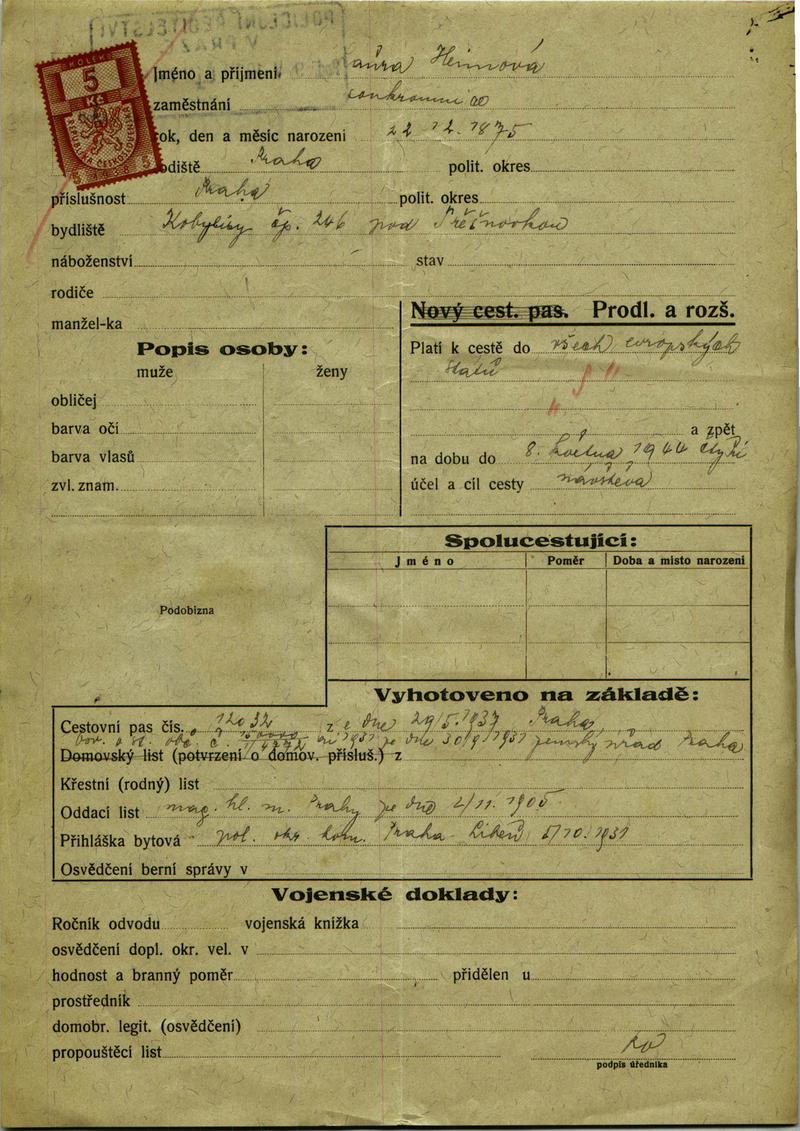 POLICEJNÍ ŘEDITELSTVÍ
V PRAZE
KOLEK
5
Kč
REPUBLIKA ČESKOSLOVENSKÁ
Jméno a příjmení Heimová
zaměstnání
rok, den a měsíc narozeni 22 12. 1875
rodiště Praha polit. okres
příslušnost Praha polit. okres
bydliště Kobylisy čp. 246 pod Třešňovkou
náboženství stav
rodiče
manžel-ka
Nový cest. pas. Prodl. a rozš.
Popis osoby:
muže ženy
obličej
barva očí
barva vlasů
zvl. znam.
Platí k cestě do všech evropských
států
a zpět
na dobu do 8. května 1944 čtyři
účel a cíl cesty návštěva
Podobizna
Spolucestující:
Jméno Poměr Doba a místo narození
Vyhotoveno na základě:
Cestovní pas čís. 12032 z dne 29/5. 1937 Praha,
ze dne 30/9. 1931 zemský úřad Praha
Domovský list (potvrzení o domov. přísluš.) z
Křestní (rodný) list
Oddací list mag. hl. m. Prahy ze dne 2/11. 1905
Přihláška bytová pol. okr. kom. Praha Libeň 5/10. 1931
Osvědčení berní správy v
Vojenské doklady:
Ročník odvodu vojenská knížka
osvědčení dopl. okr. vel. v
hodnost a branný poměr přidělen u
prostředník
domobr. legit. (osvědčení)
propouštěcí list
podpis úředníka